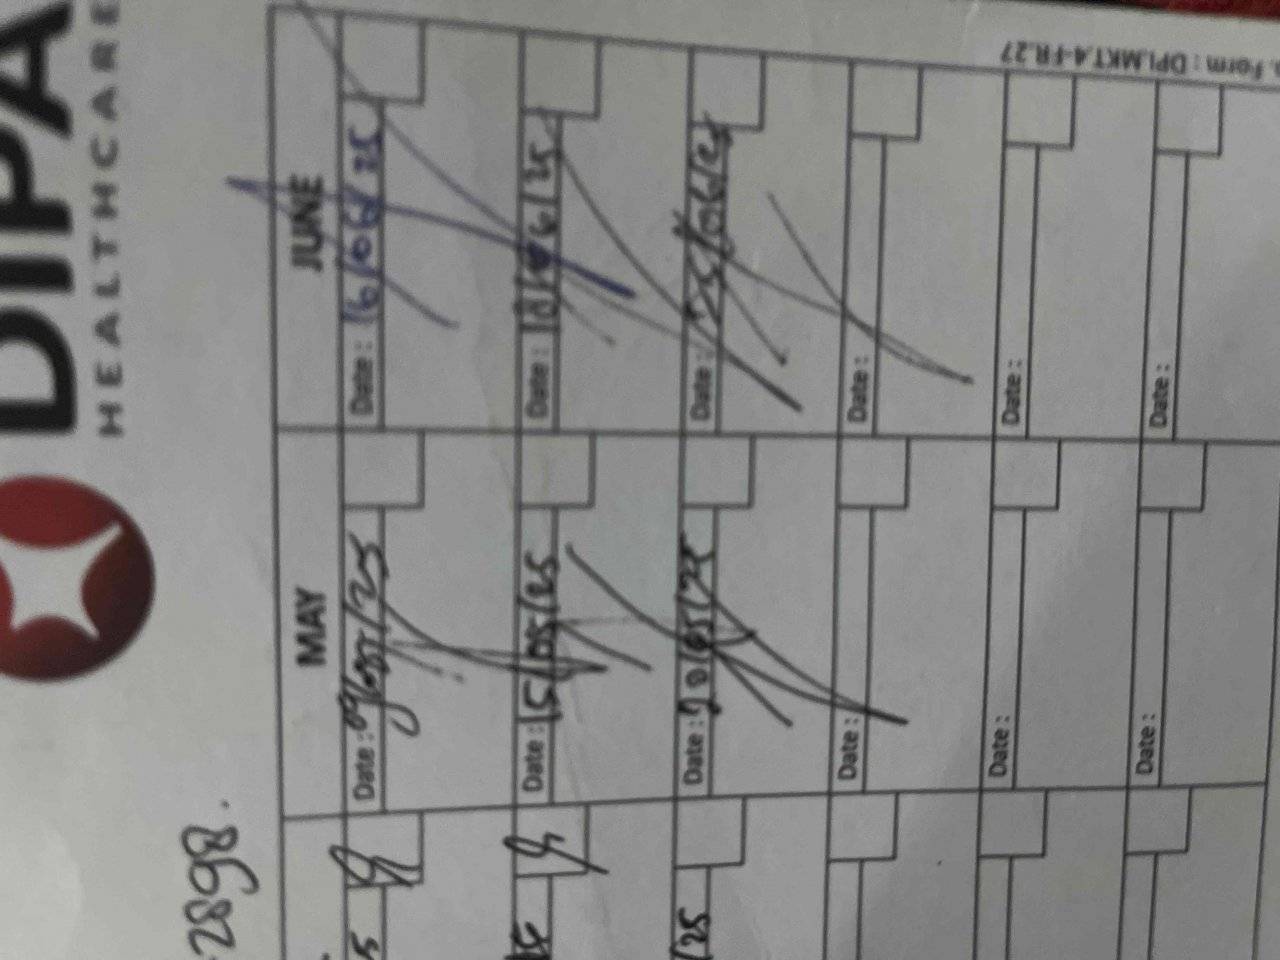 DIPA
HEALTHCARE
2898.
MAY
JUNE
Date : 09/05/25
Date : 16/06/25
Date : 15/05/25
Date : 18/06/25
Date : 20/05/25
Date : 25/06/25
Date :
Date :
Date :
Date :
Date :
Date :
5
/25
. Form : DPI.MKT.4-FR.27